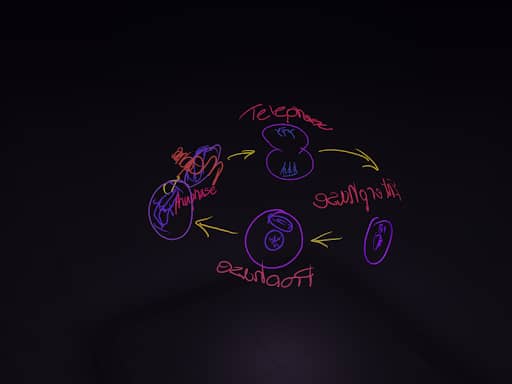 Telephase
Interphase
Anaphase
Prophase